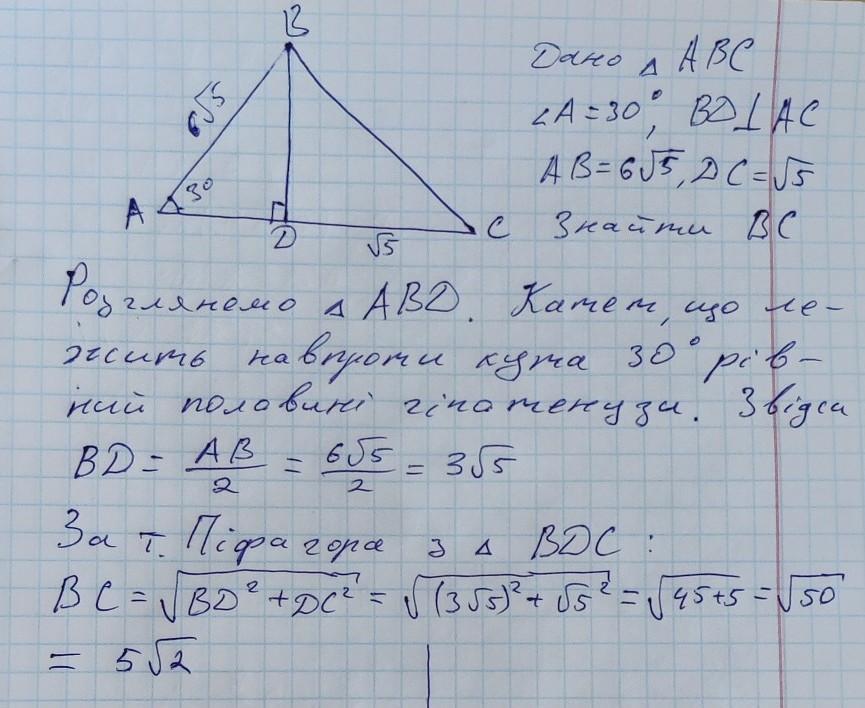 B
6√5
3°
A
D
√5
C
Дано △ ABC
∠A = 30°, BD⊥AC
AB = 6√5, DC = √5
Знайти BC
Розглянемо △ ABD. Катет, що ле-
жить навпроти кута 30° рів-
ний половині гіпотенузи. Звідси
BD = AB/2 = 6√5/2 = 3√5
За т. Піфагора з △ BDC:
BC = √(BD² + DC²) = √((3√5)² + √5²) = √(45+5) = √50
= 5√2